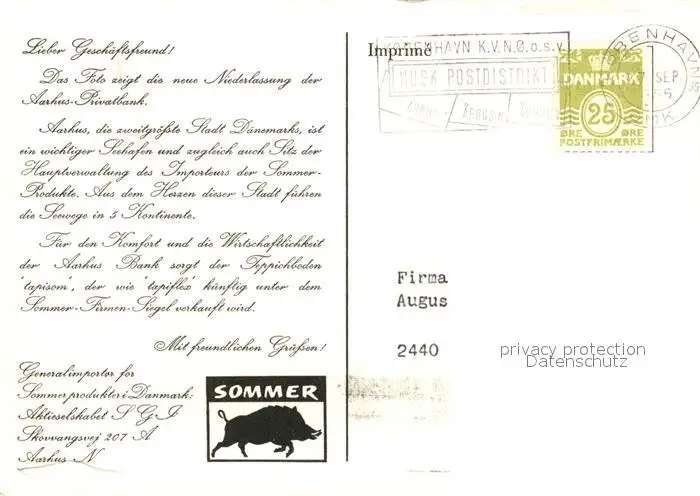 Lieber Geschäftsfreund!
Das Foto zeigt die neue Niederlassung der
Aarhus-Privatbank.
Aarhus, die zweitgrößte Stadt Dänemarks, ist
ein wichtiger Seehafen und zugleich auch Sitz der
Hauptverwaltung des Importeurs der Sommer-
Produkte. Aus dem Herzen dieser Stadt führen
die Seewege in 5 Kontinente.
Für den Komfort und die Wirtschaftlichkeit
der Aarhus Bank sorgt der Teppichboden
"tapisom", der wie "tapiflex" künftig unter dem
Sommer-Firmen-Siegel verkauft wird.
Mit freundlichen Grüßen!
Generalimportør for
Sommer produkter i Danmark:
Aktieselskabet S G I
Skovvangsvej 207 A
Aarhus N
SOMMER
Imprimé
KØBENHAVN K.V.N.Ø.o.s.v.
HUSK POSTDISTRIKT
KØBENHAVN
SEP
DANMARK
25
ØRE ØRE
POSTFRIMÆRKE
Firma
Augus
2440
privacy protection
Datenschutz